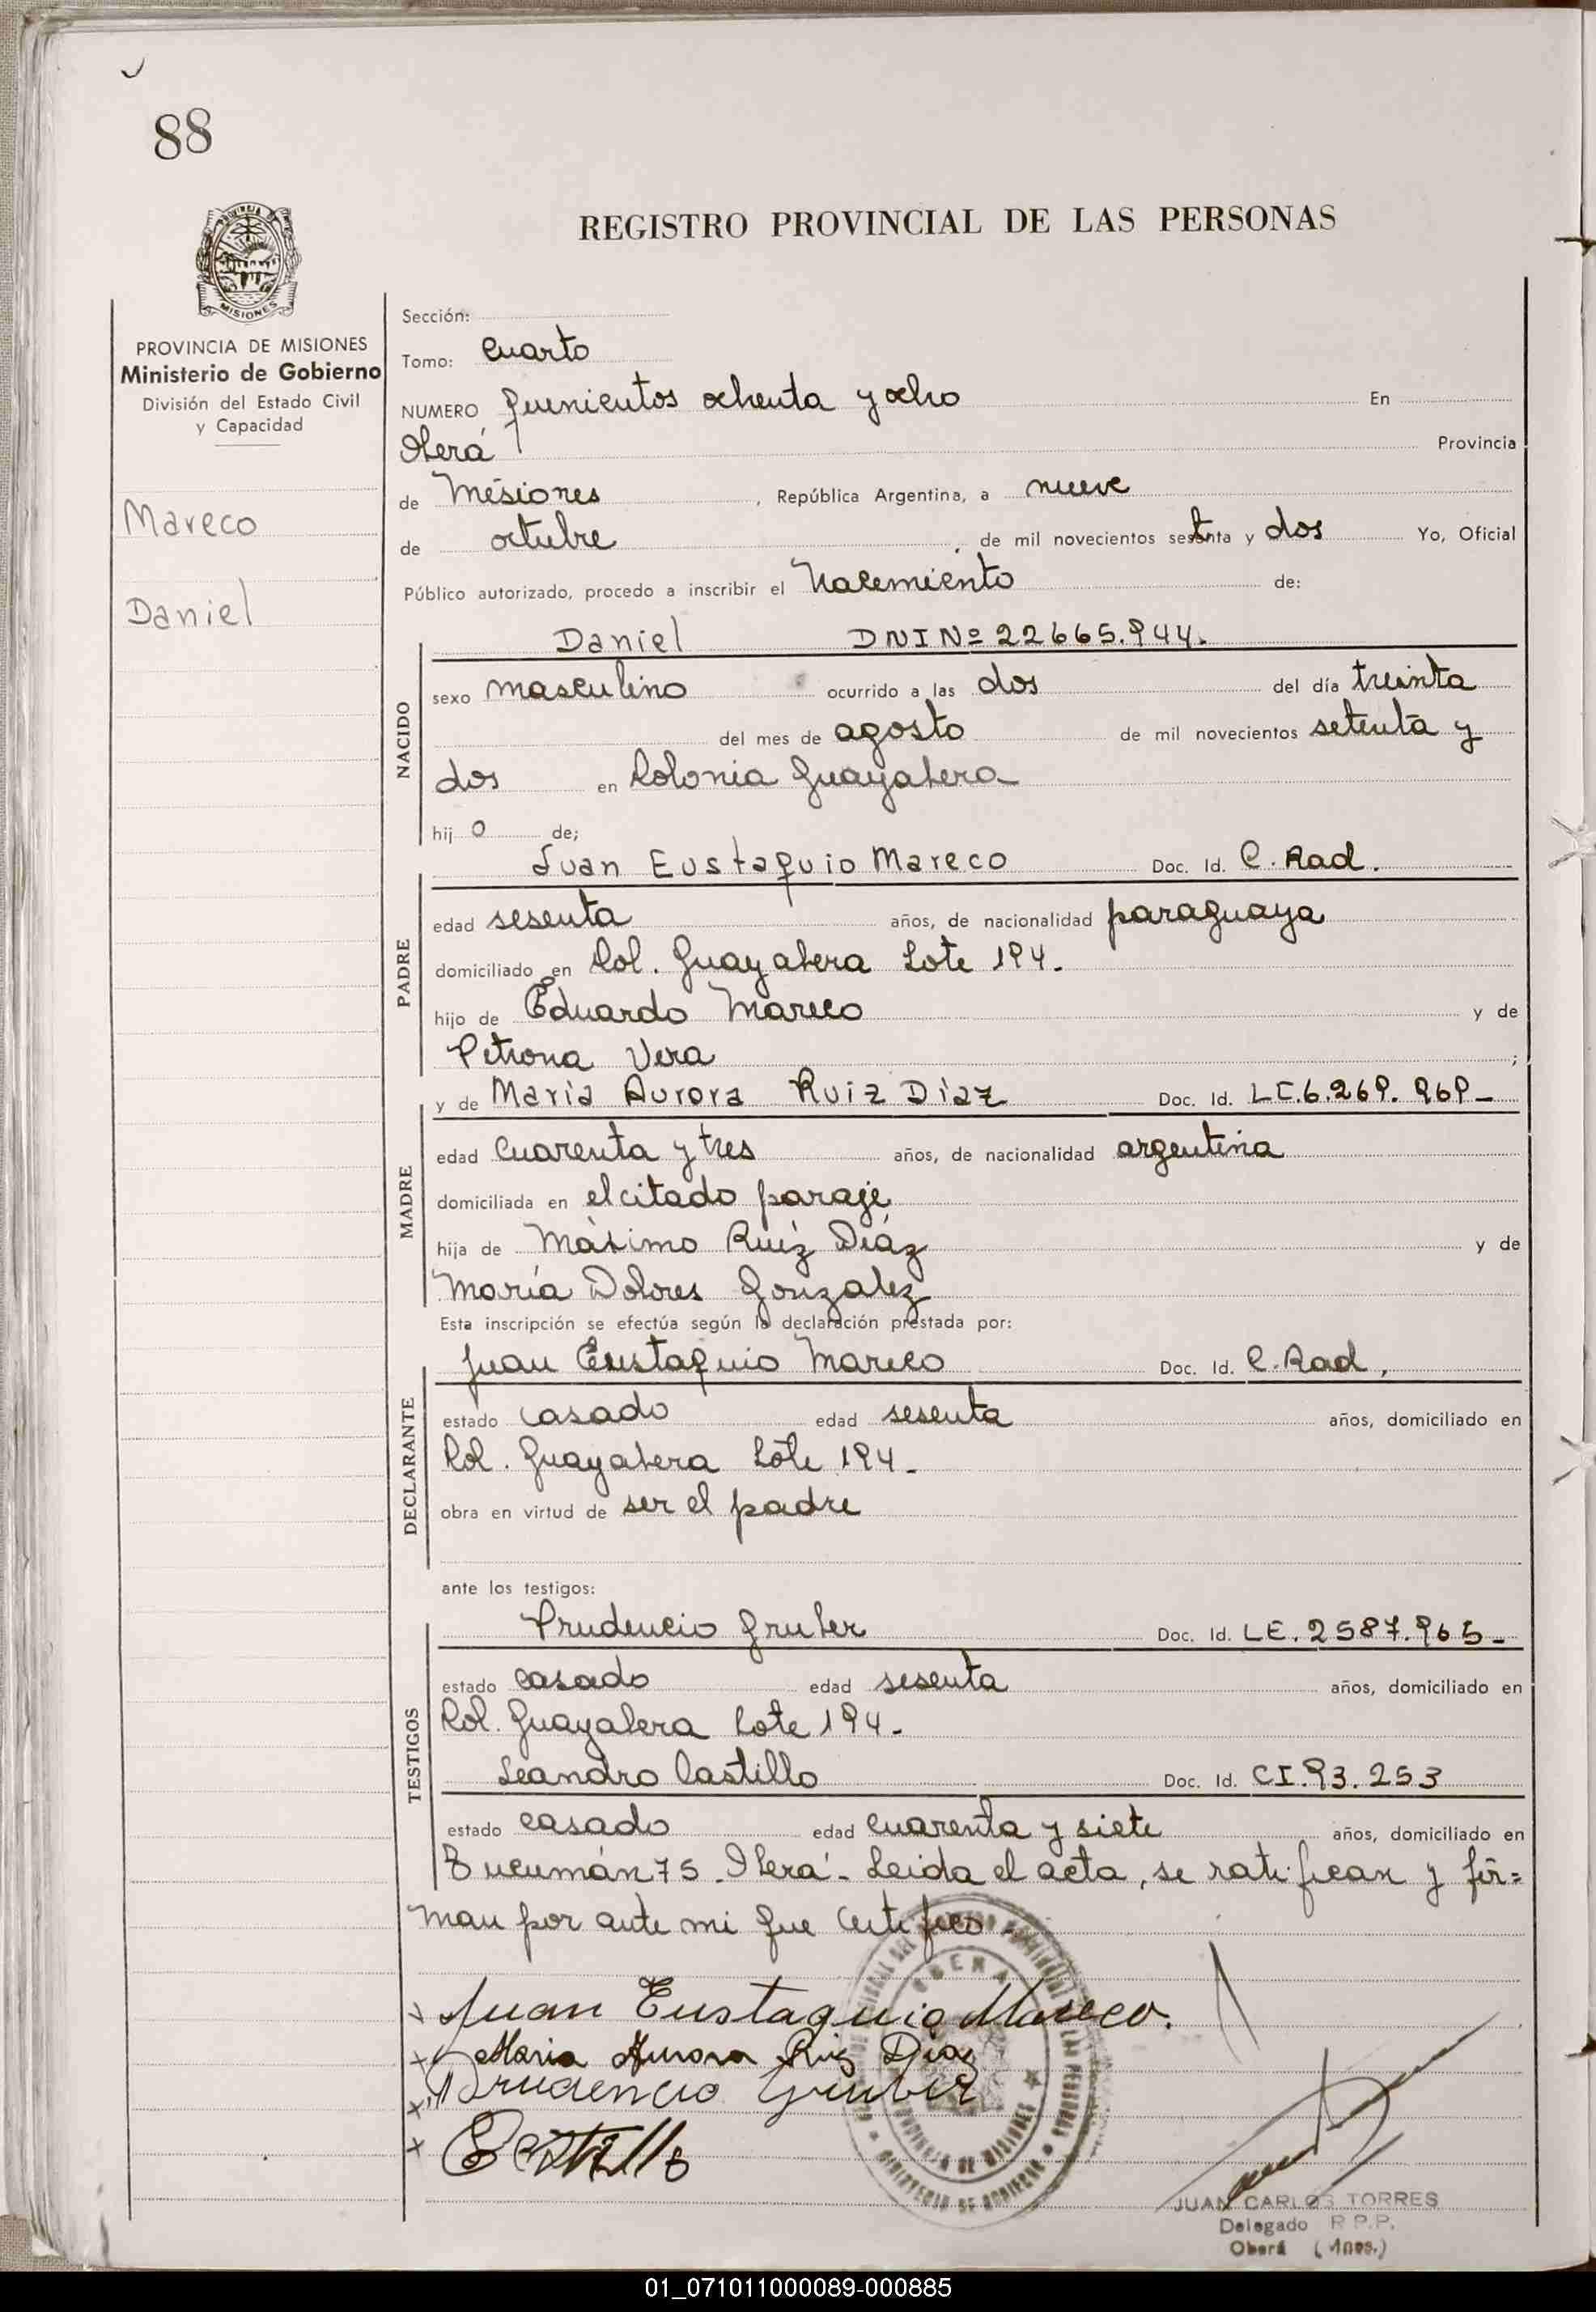 88
REGISTRO PROVINCIAL DE LAS PERSONAS
MISIONES
PROVINCIA DE MISIONES
Ministerio de Gobierno
División del Estado Civil
y Capacidad
Mareco
Daniel
Sección:
Tomo: Cuarto
NUMERO quinientos ochenta y ocho En
Oberá Provincia
de Misiones, República Argentina, a nueve
de octubre de mil novecientos setenta y dos Yo, Oficial
Público autorizado, procedo a inscribir el Nacimiento de:
Daniel DNI Nº 22665.944.
NACIDO
sexo masculino ocurrido a las dos del día treinta
del mes de agosto de mil novecientos setenta y
dos en Colonia Guayabera
hijo de;
Juan Eustaquio Mareco Doc. Id. C. Rad.
PADRE
edad sesenta años, de nacionalidad paraguaya
domiciliado en Col. Guayabera Lote 194.
hijo de Eduardo Mareco y de
Petrona Vera ;
y de Maria Aurora Ruiz Diaz Doc. Id. LC.6.269.969-
MADRE
edad cuarenta y tres años, de nacionalidad argentina
domiciliada en el citado paraje
hija de Máximo Ruíz Díaz y de
María Dolores Gonzalez
Esta inscripción se efectúa según la declaración prestada por:
Juan Eustaquio Mareco Doc. Id. C. Rad,
DECLARANTE
estado casado edad sesenta años, domiciliado en
Col. Guayabera Lote 194-
obra en virtud de ser el padre
ante los testigos:
Prudencio Gruber Doc. Id. LE. 2587.965-
TESTIGOS
estado casado edad sesenta años, domiciliado en
Col. Guayabera Lote 194-
Leandro Castillo Doc. Id. CI.93.253
estado casado edad cuarenta y siete años, domiciliado en
Tucumán 75. Oberá- Leida el acta, se ratifican y fir=
man por ante mi que certifico.
Juan Eustaquio Mareco.
Maria Aurora Ruiz Diaz
Prudencio Gruber
Castillo
OBERA
PROVINCIA DE MISIONES
MINISTERIO DE GOBIERNO
JUAN CARLOS TORRES
Delegado R.P.P.
Oberá (Mnes.)
01_071011000089-000885